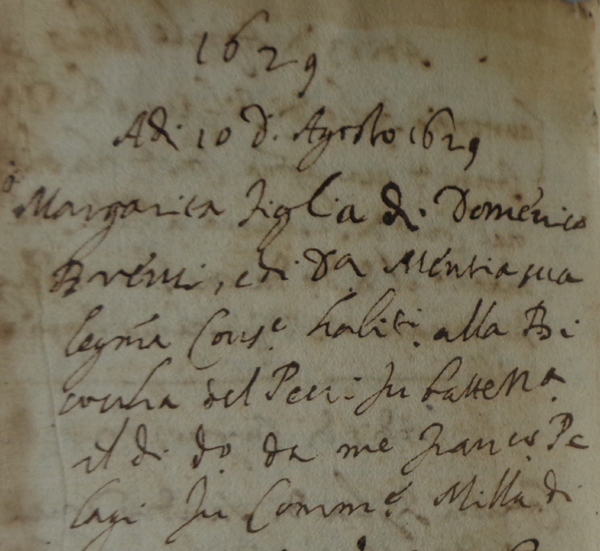 1629
Adi 10 d. Agosto 1629
Margarita figlia di Domenico
Brenti, e di Da Mentia sua
legma Conse. habiti. alla Bi
cocha del Petri fu battezza
il di do. da me Franco. Pe
lagi fu Comme. Milla di